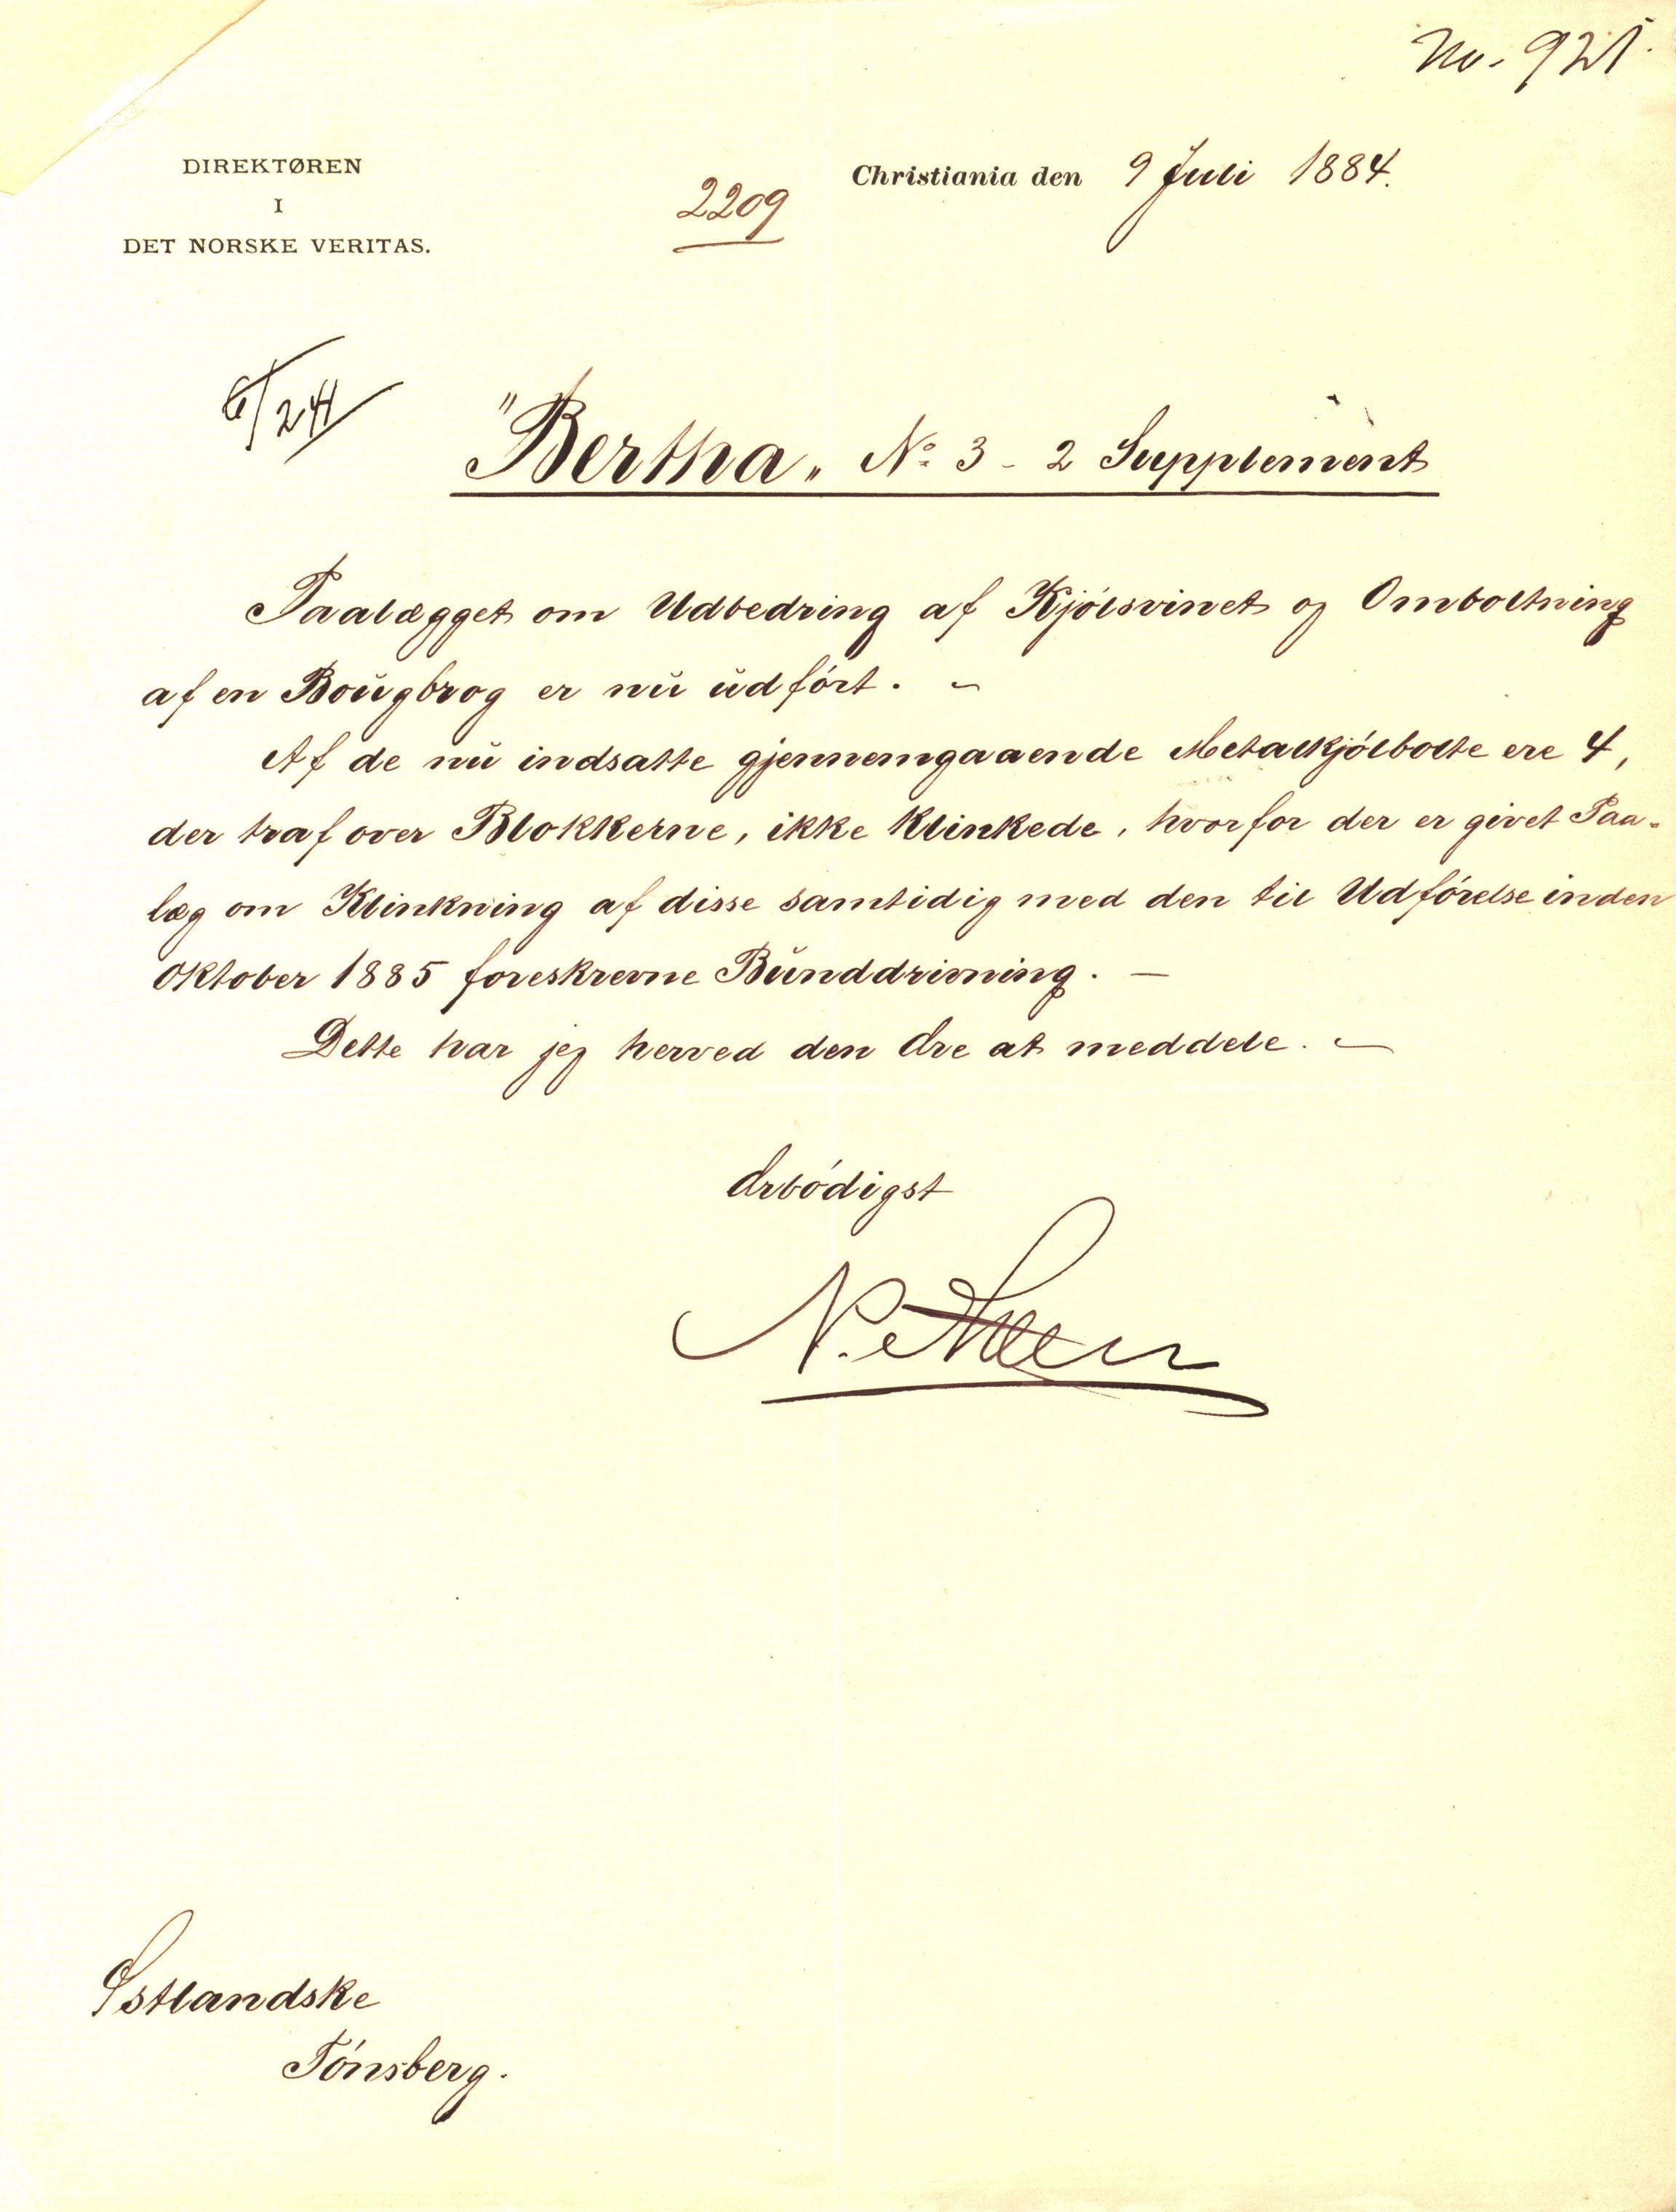 No. 921.
DIREKTØREN
I
DET NORSKE VERITAS.
2209
Christiania den 9 Juli 1884.
6/24
"Bertha" No. 3 - 2 Supplement
Paalægget om Udbedring af Kjólsvinet og Omboltning
af en Bougbrog er nu udfórt. -
Af de nu indsatte gjennemgaaende Metalkjólbolte ere 4,
der traf over Blokkerne, ikke Klinkede, hvorfor der er givet Paa-
læg om Klinkning af disse samtidig med den til Udfórelse inden
Oktober 1885 foreskrevne Bunddrivning. -
Dette har jeg herved den Ære at meddele. -
Ærbódigst
N.
Østlandske
Tónsberg.